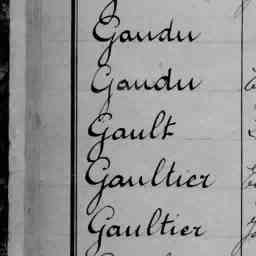 Gaudu
Gaudu
Gault
Gaultier
Gaultier